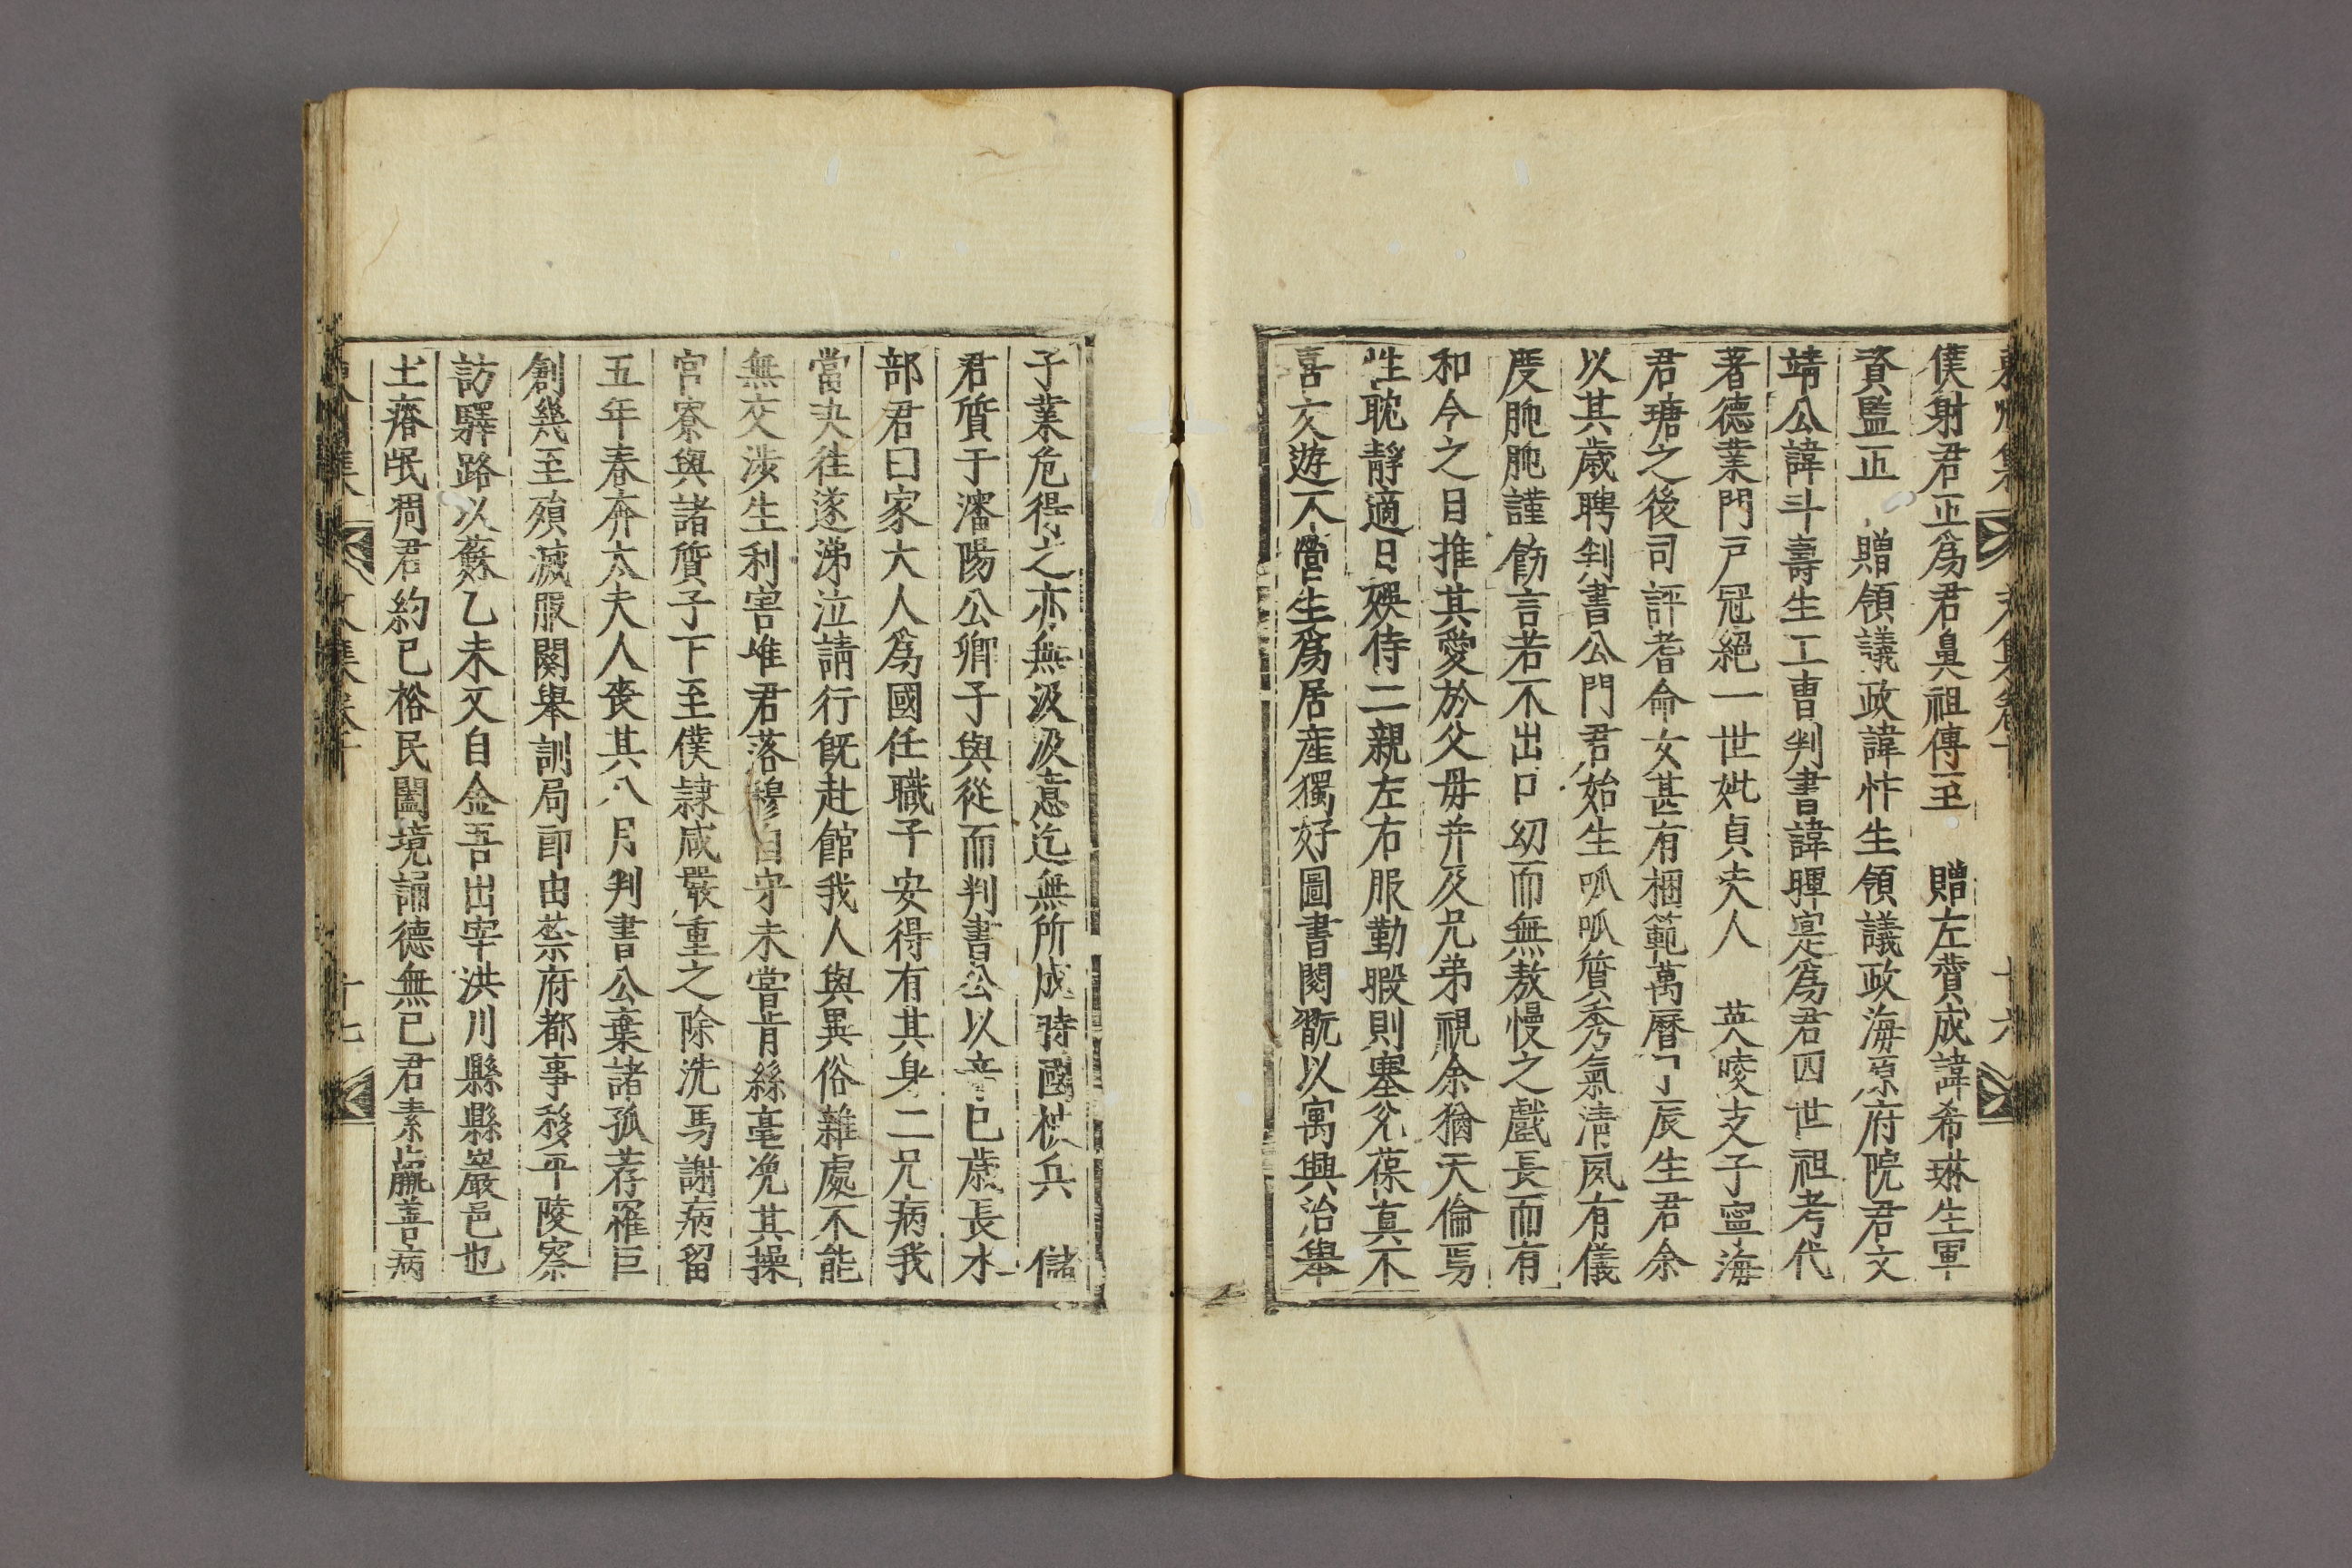 僕射君正爲君鼻祖傳至　贈左賛成諱希琳生軍
資監正　贈領議政諱忭生領議政海原府院君文
靖公諱斗壽生工曹判書諱暉寔爲君四世祖考代
著德業門戶冠絕一世妣貞夫人　英陵支子寧海
君瑭之後司評耆侖女甚有梱範萬曆丁辰生君余
以其歲聘判書公門君始生呱呱質秀氣淸夙有儀
度肫肫謹飭言若不出口幼而無敖慢之戲長而有
和今之日推其愛於父母幷及兄弟視余猶天倫焉
性耽靜適日娛侍二親左右服勤暇則塞兌葆眞不
喜交遊不營生爲居産獨好圖書閱翫以寓興治擧
子業危得之亦無汲汲意迄無所成時國被兵　儲
君質于瀋陽公卿子與從而判書公以辛巳歲長水
部君曰家大人爲國任職子安得有其身二兄病我
當夬往遂涕泣請行旣赴館我人與異俗雜處不能
無交涉生利害唯君落穆自守未嘗肯絲毫浼其操
宮寮與諸質子下至僕隷咸嚴重之除洗馬謝病留
五年春奔太夫人喪其八月判書公棄諸孤荐罹巨
創幾至殞滅服闋擧訓局郞由禁府都事移平陵察
訪驛路以蘇乙未又自金吾出宰洪川縣縣巖邑也
土瘠氓凋君約己裕民闔境誦德無已君素羸善病
文集卷十　十七